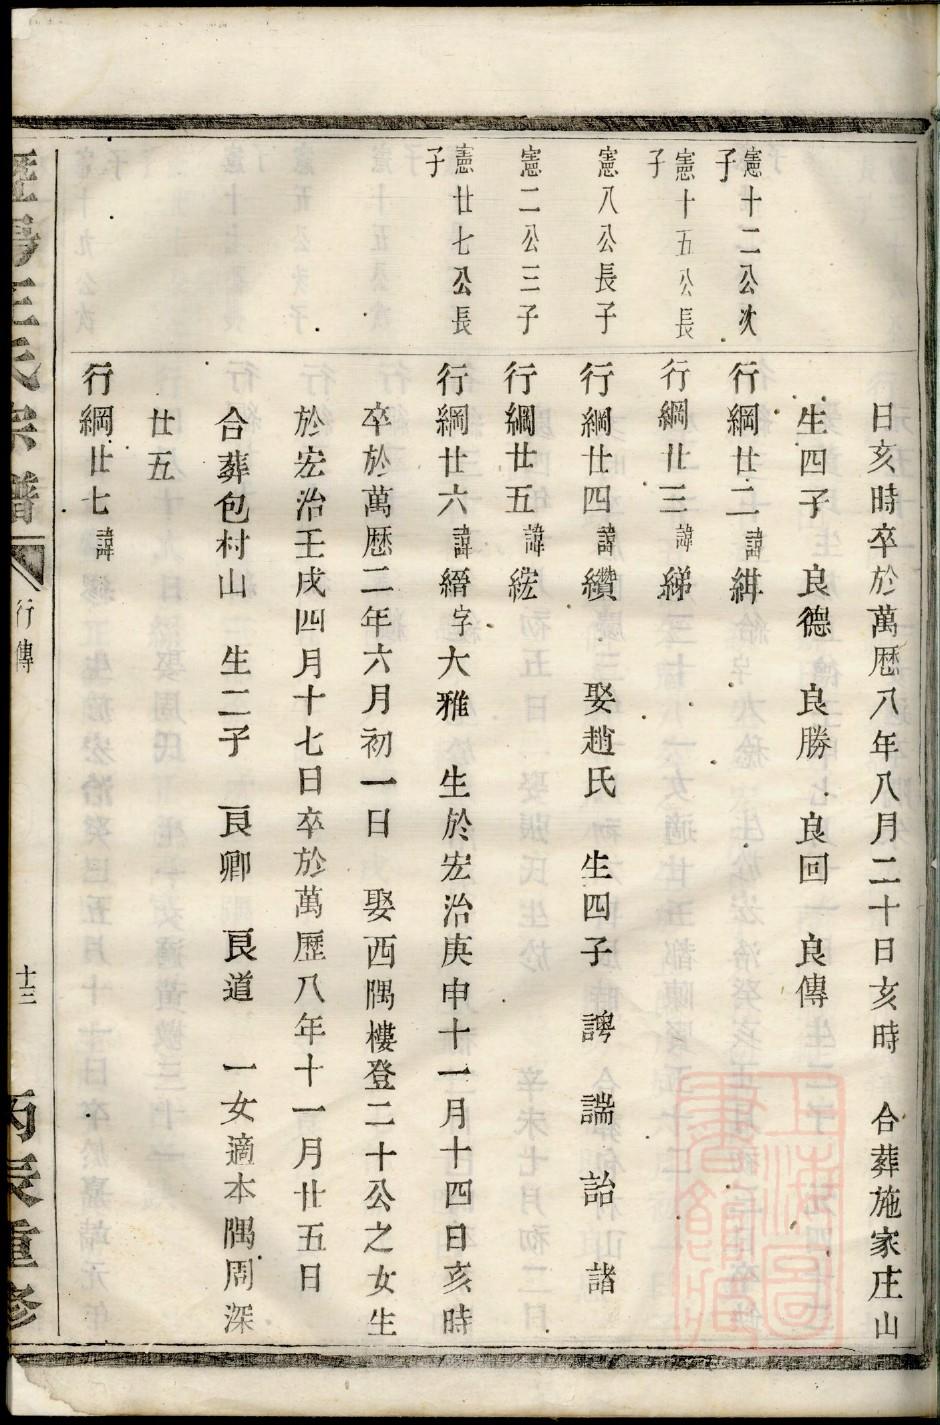 日亥時卒於萬歴八年八月二十日亥時　合葬施家庄山
生四子　良德　良勝　良回　良傳
憲十二公次子
行綱廿二諱緝
憲十五公長子
行綱廿三諱綈
憲八公長子
行綱廿四諱纘　娶趙氏　生四子　謗　諯　詒　諸
憲二公三子
行綱廿五諱綋
憲廿七公長子
行綱廿六諱縉字大雅　生於宏治庚申十一月十四日亥時
卒於萬歴二年六月初一日　娶西隅樓登二十公之女生
於宏治壬戌四月十七日卒於萬歷八年十一月廿五日
合葬包村山　生二子　良卿　良道　一女適本隅周深
廿五
行綱廿七諱
王氏宗譜
行傳
十三
丙辰重修